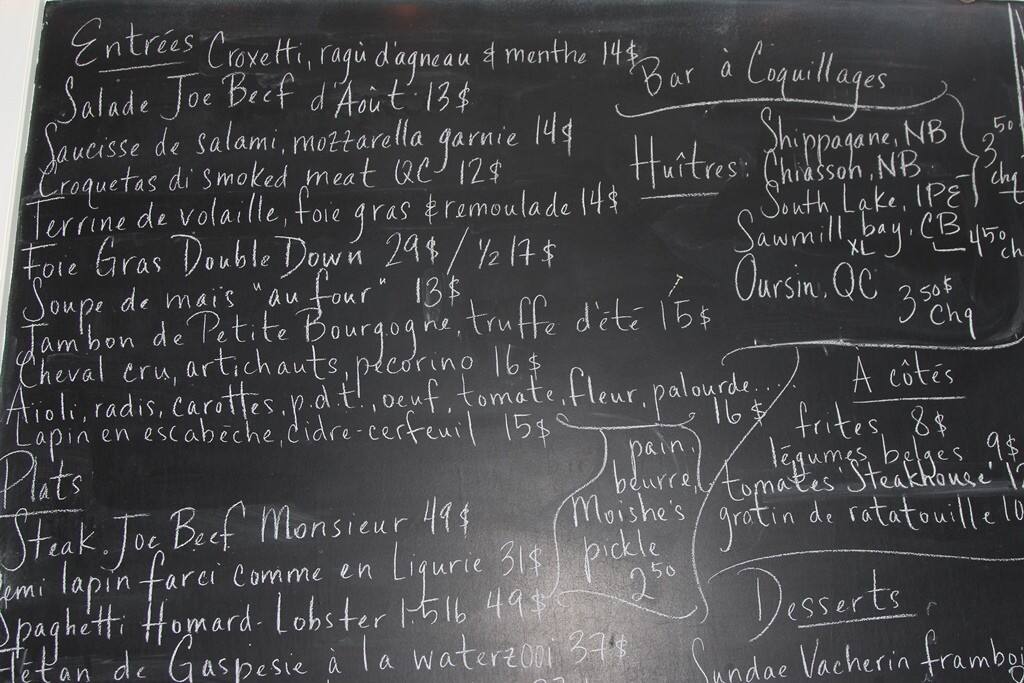 Entrées Croxetti, ragù d'agneau & menthe 14$
Salade Joe Beef d'Août 13$
Saucisse de salami, mozzarella garnie 14$
Croquetas di smoked meat QC 12$
Terrine de volaille, foie gras & remoulade 14$
Foie Gras Double Down 29$ / ½ 17$
Soupe de maïs "au four" 13$
Jambon de Petite Bourgogne, truffe d'été 15$
Cheval cru, artichauts, pecorino 16$
Aïoli, radis, carottes, p.d.t., oeuf, tomate, fleur, palourde...
16$
Lapin en escabèche, cidre-cerfeuil 15$
Plats
Steak Joe Beef Monsieur 49$
emi lapin farci comme en Ligurie 31$
Spaghetti Homard-Lobster 1.5lb 49$
Flétan de Gaspesie à la waterzooi 37$
pain,
beurre,
Moishe's
pickle
2 50
Bar à Coquillages
Huîtres: Shippagane, NB
Chiasson, NB
South Lake, IPE
3 50
chq
Sawmill bay, CB
XL
4 50
ch
Oursin, QC
3 50$
chq
A côtés
frites 8$
légumes belges 9$
tomates Steakhouse
gratin de ratatouille 10
Desserts
Sundae Vacherin framboi